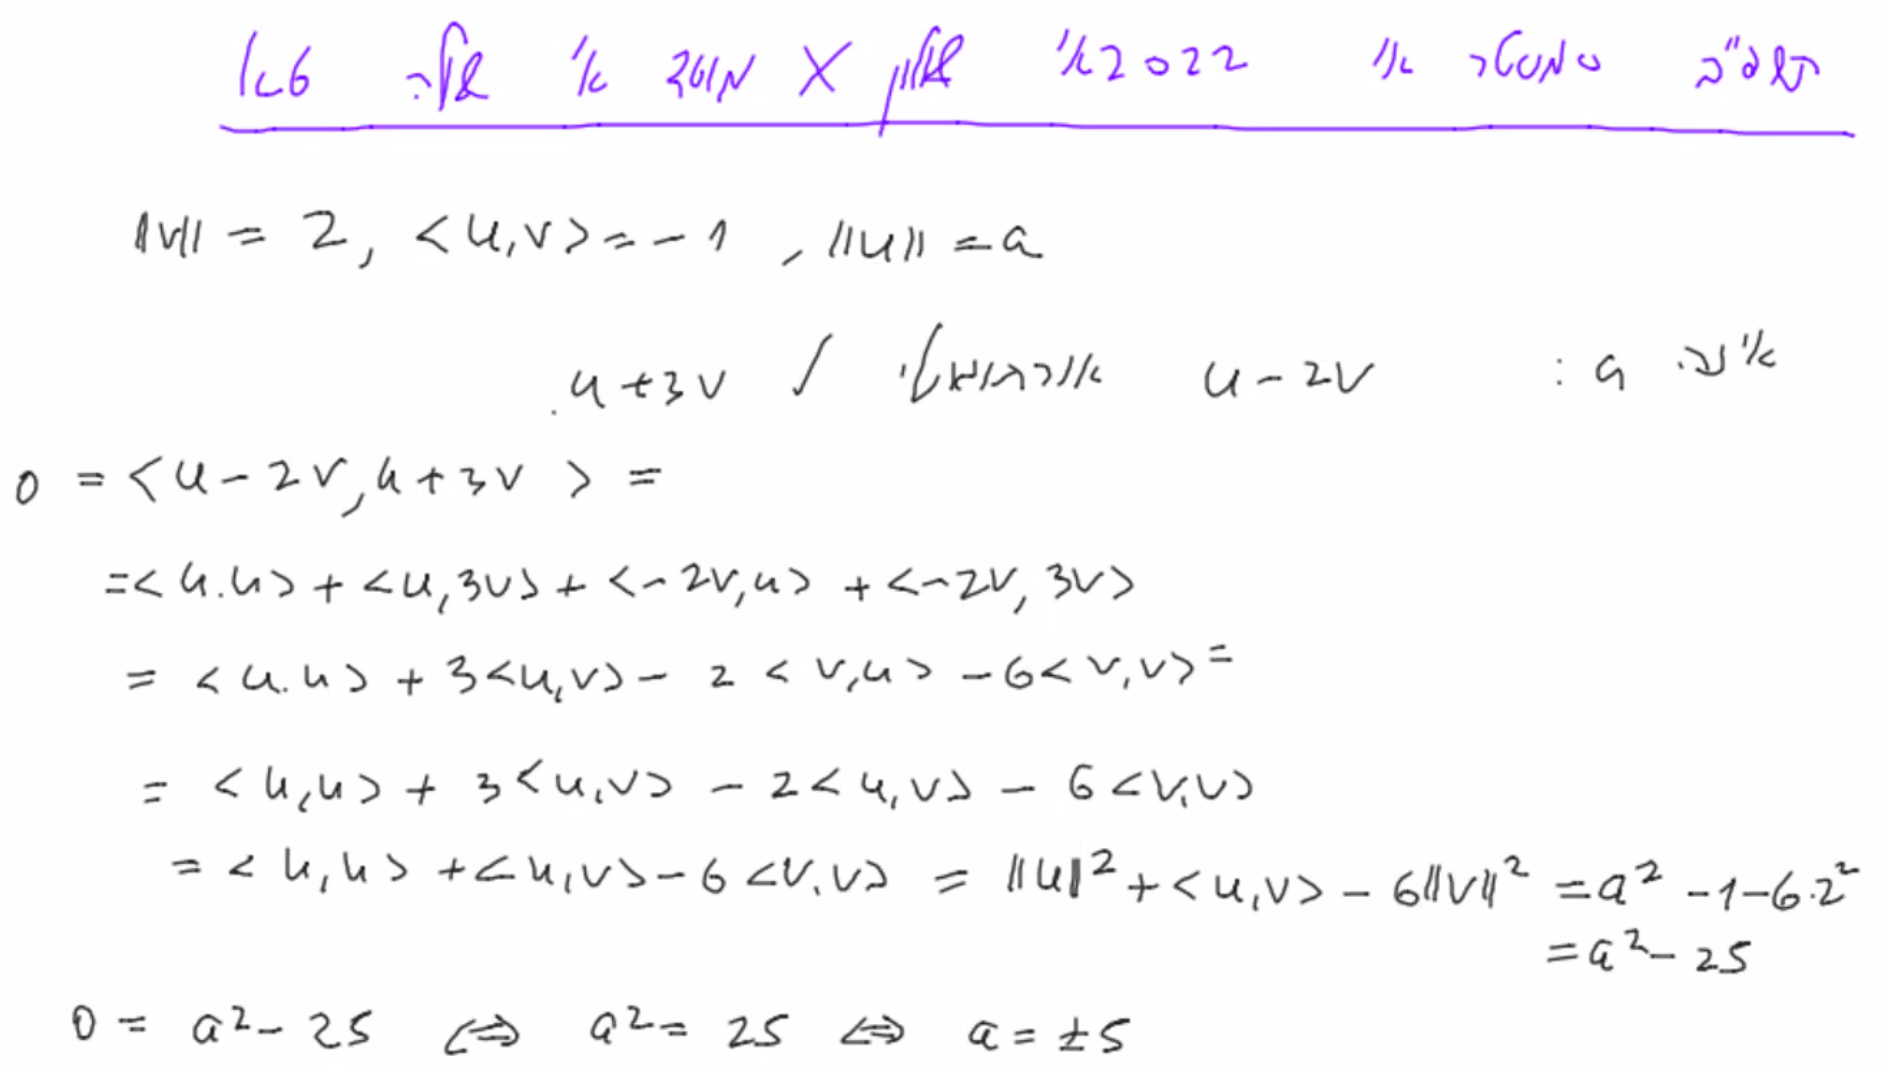 תשפ"ב סמסטר א' 2022א' שאלון X מועד א' שאלה 6א'
||v|| = 2, <u,v> = -1, ||u|| = a
א"נ a : u-2v אורתוגונלי ל u+3v.
0 = <u-2v,u+3v> =
=<u.u> + <u,3v> + <-2v,u> + <-2v,3v>
= <u.u> + 3<u,v> - 2<v,u> - 6<v,v> =
= <u,u> + 3<u,v> - 2<u,v> - 6<v,v>
= <u,u> + <u,v> - 6<v,v> = ||u||² + <u,v> - 6||v||² = a² - 1 - 6·2²
= a² - 25
0 = a² - 25 ⇔ a² = 25 ⇔ a = ±5